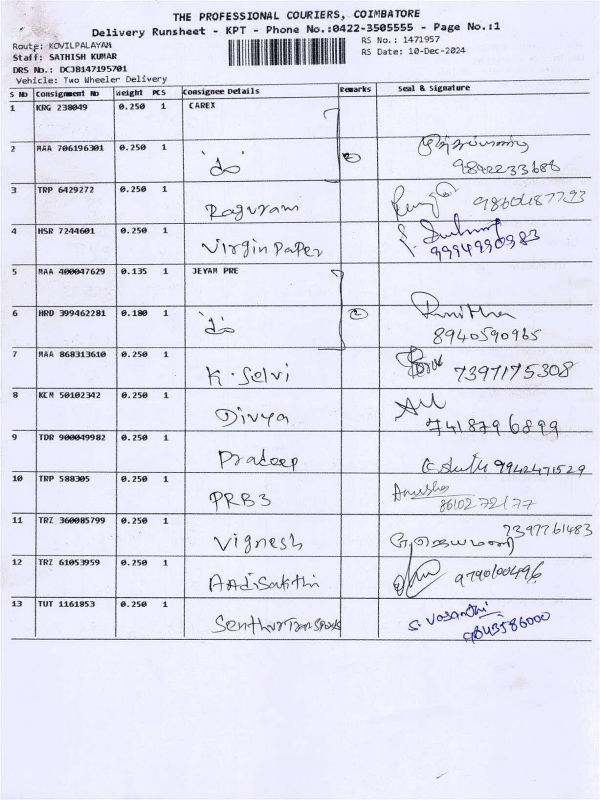 THE PROFESSIONAL COURIERS, COIMBATORE
Delivery Runsheet - KPT - Phone No.:0422-3505555 - Page No.:1
Route: KOVILPALAYAM
RS No.: 1471957
Staff: SATHISH KUMAR
RS Date: 10-Dec-2024
DRS No.: DCJB147195701
Vehicle: Two Wheeler Delivery
S No Consignment No Weight PCS Consignee Details Remarks Seal & Signature
1 KRG 238049 0.250 1 CAREX
2 MAA 706196301 0.250 1 "do" 2
9892233686
3 TRP 6429272 0.250 1 Raguram
4 HSR 7244601 0.250 1 Virgin Paper
9994990983
5 MAA 400047629 0.135 1 JEYAM PRE
6 HRD 399462281 0.180 1 "do" 2 Runitha
8940590965
7 MAA 868313610 0.250 1 K. Selvi 7397175308
8 KCM 50102342 0.250 1 Divya
7418796899
9 TDR 900049982 0.250 1 Pradeep 9942471529
10 TRP 588305 0.250 1 PRB3 Anusha
8610272177
11 TRZ 360085799 0.250 1 Vignesh 7397761483
12 TRZ 61053959 0.250 1 AadiSakthi 9790100496
13 TUT 1161853 0.250 1 Senthur Transports S. Vasanthi
9843586000